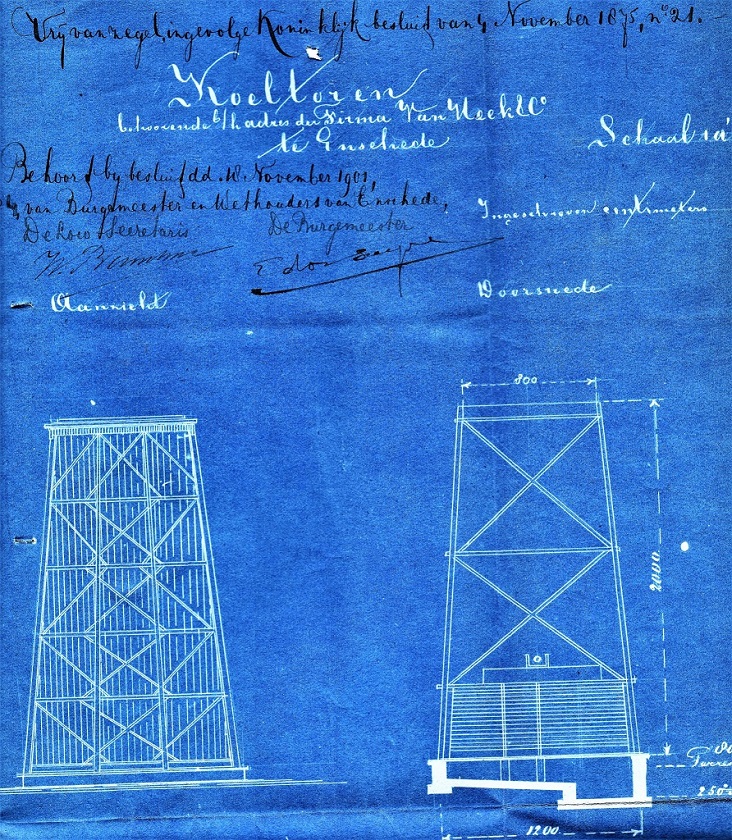 Vrij van zegel, ingevolge Koninklijk besluit van 4 November 1875, no 21.
Koeltoren
behoorende b/h adres der Firma Van Heek & Co
te Enschede
Schaal 1 à
Behoort bij besluit dd. 18 November 1901,
van Burgemeester en Wethouders van Enschede,
De Loco Secretaris
De Burgemeester
Ingeschreven centimeters
Aanzicht
Doorsnede
800
2000
250
1200